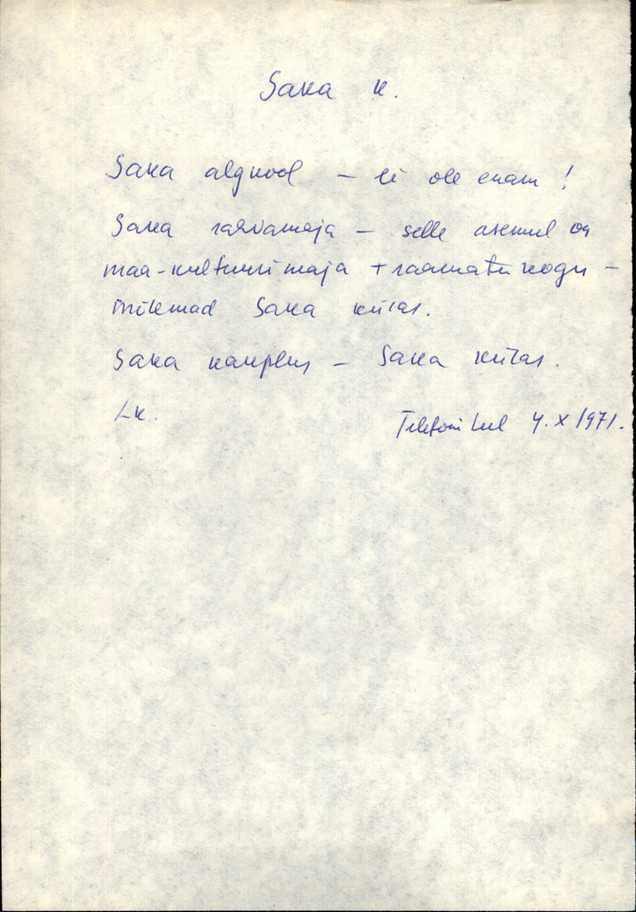 Saka k.
Saka algkool – ei ole enam!
Saka rahvamaja – selle asemel on
maa-kultuurimaja + raamatukogu –
mõlemad Saka külas.
Saka kauplus – Saka külas.
Lk.
Telefoni teel 4. X 1971.